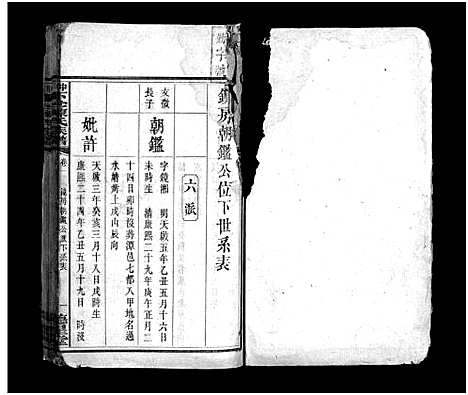 鎮房朝鑑公位下世系表
六派
文徵
長子
朝鑑
字鏡湘 明天啟五年乙丑五月十六日
未時生 清康熙二十九年庚午正月二
十四日卯時沒葬潭邑七都八甲地名過
水塘黃上戌山辰向
妣許
天啟三年癸亥三月十八日戌時生
康熙二十四年乙丑五月十九日 時沒
氏族譜
卷
鎮房朝鑑公位下世系表
一